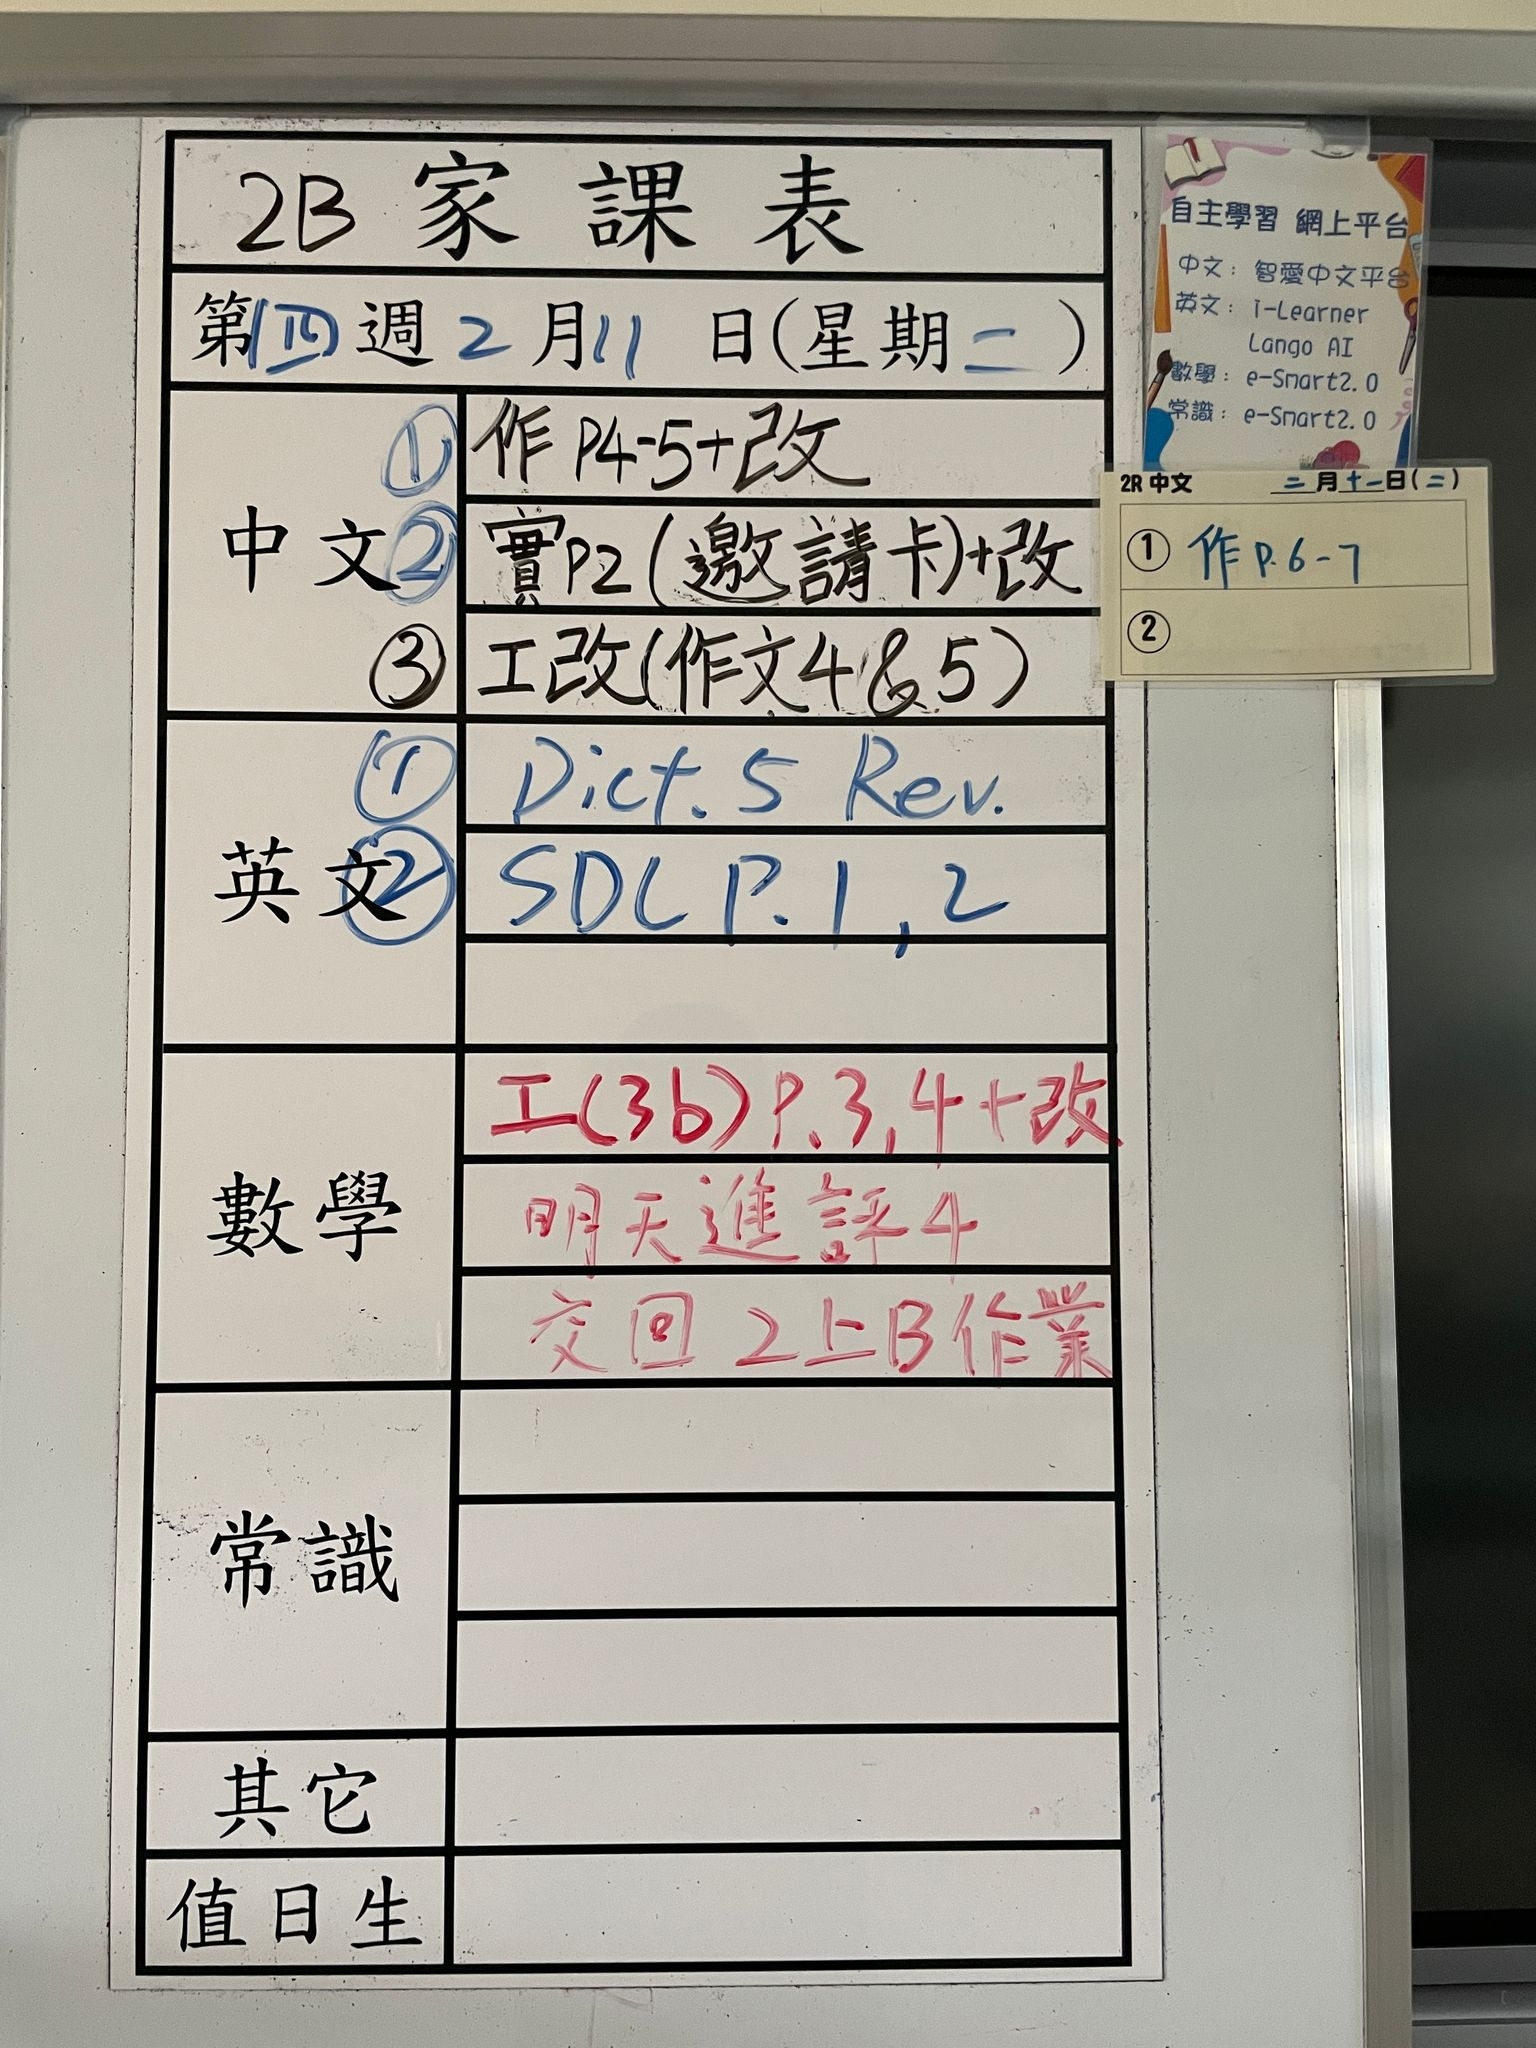 2B 家課表
第四週 2月11日(星期二)
中文
① 作P4-5+改
② 實P2(邀請卡)+改
③ 工改(作文4&5)
英文
① Dict. 5 Rev.
② SDL P. 1, 2
數學
工(3b) P. 3, 4 + 改
明天進評4
交回 2上B作業
常識
其它
值日生
自主學習 網上平台
中文: 智愛中文平台
英文: i-Learner
Lango AI
數學: e-Smart2.0
常識: e-Smart2.0
2R 中文 二月十一日(二)
① 作 P. 6-7
②